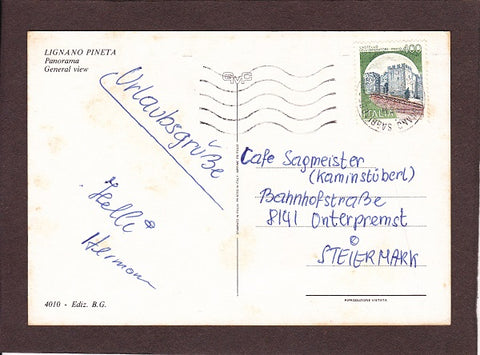 LIGNANO PINETA
Panorama
General view
Urlaubsgrüße
Helli
Hermann
4010 - Ediz. B.G.
400
ITALIA
Cafe Sagmeister
(Kaminstüberl)
Bahnhofstraße
8141 Unterpremst
STEIERMARK
RIPRODUZIONE VIETATA